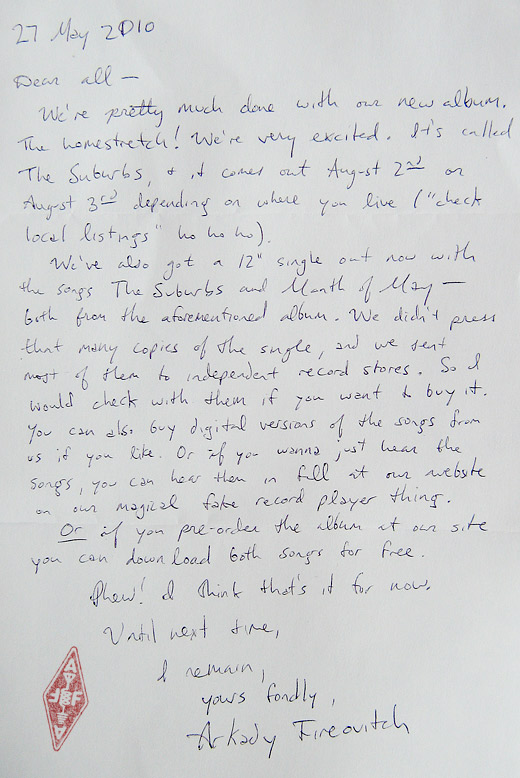 27 May 2010
Dear all —
We're pretty much done with our new album.
The homestretch! We're very excited. It's called
The Suburbs, + it comes out August 2nd or
August 3rd depending on where you live ("check
local listings" ho ho ho).
We've also got a 12" single out now with
the songs The Suburbs and Month of May —
both from the aforementioned album. We didn't press
that many copies of the single, and we sent
most of them to independent record stores. So I
would check with them if you want to buy it.
You can also buy digital versions of the songs from
us if you like. Or if you wanna just hear the
songs, you can hear them in full at our website
on our magical fake record player thing.
Or if you pre-order the album at our site
you can download both songs for free.
Phew! I think that's it for now.
Until next time,
I remain,
yours fondly,
Arkady Fireovitch